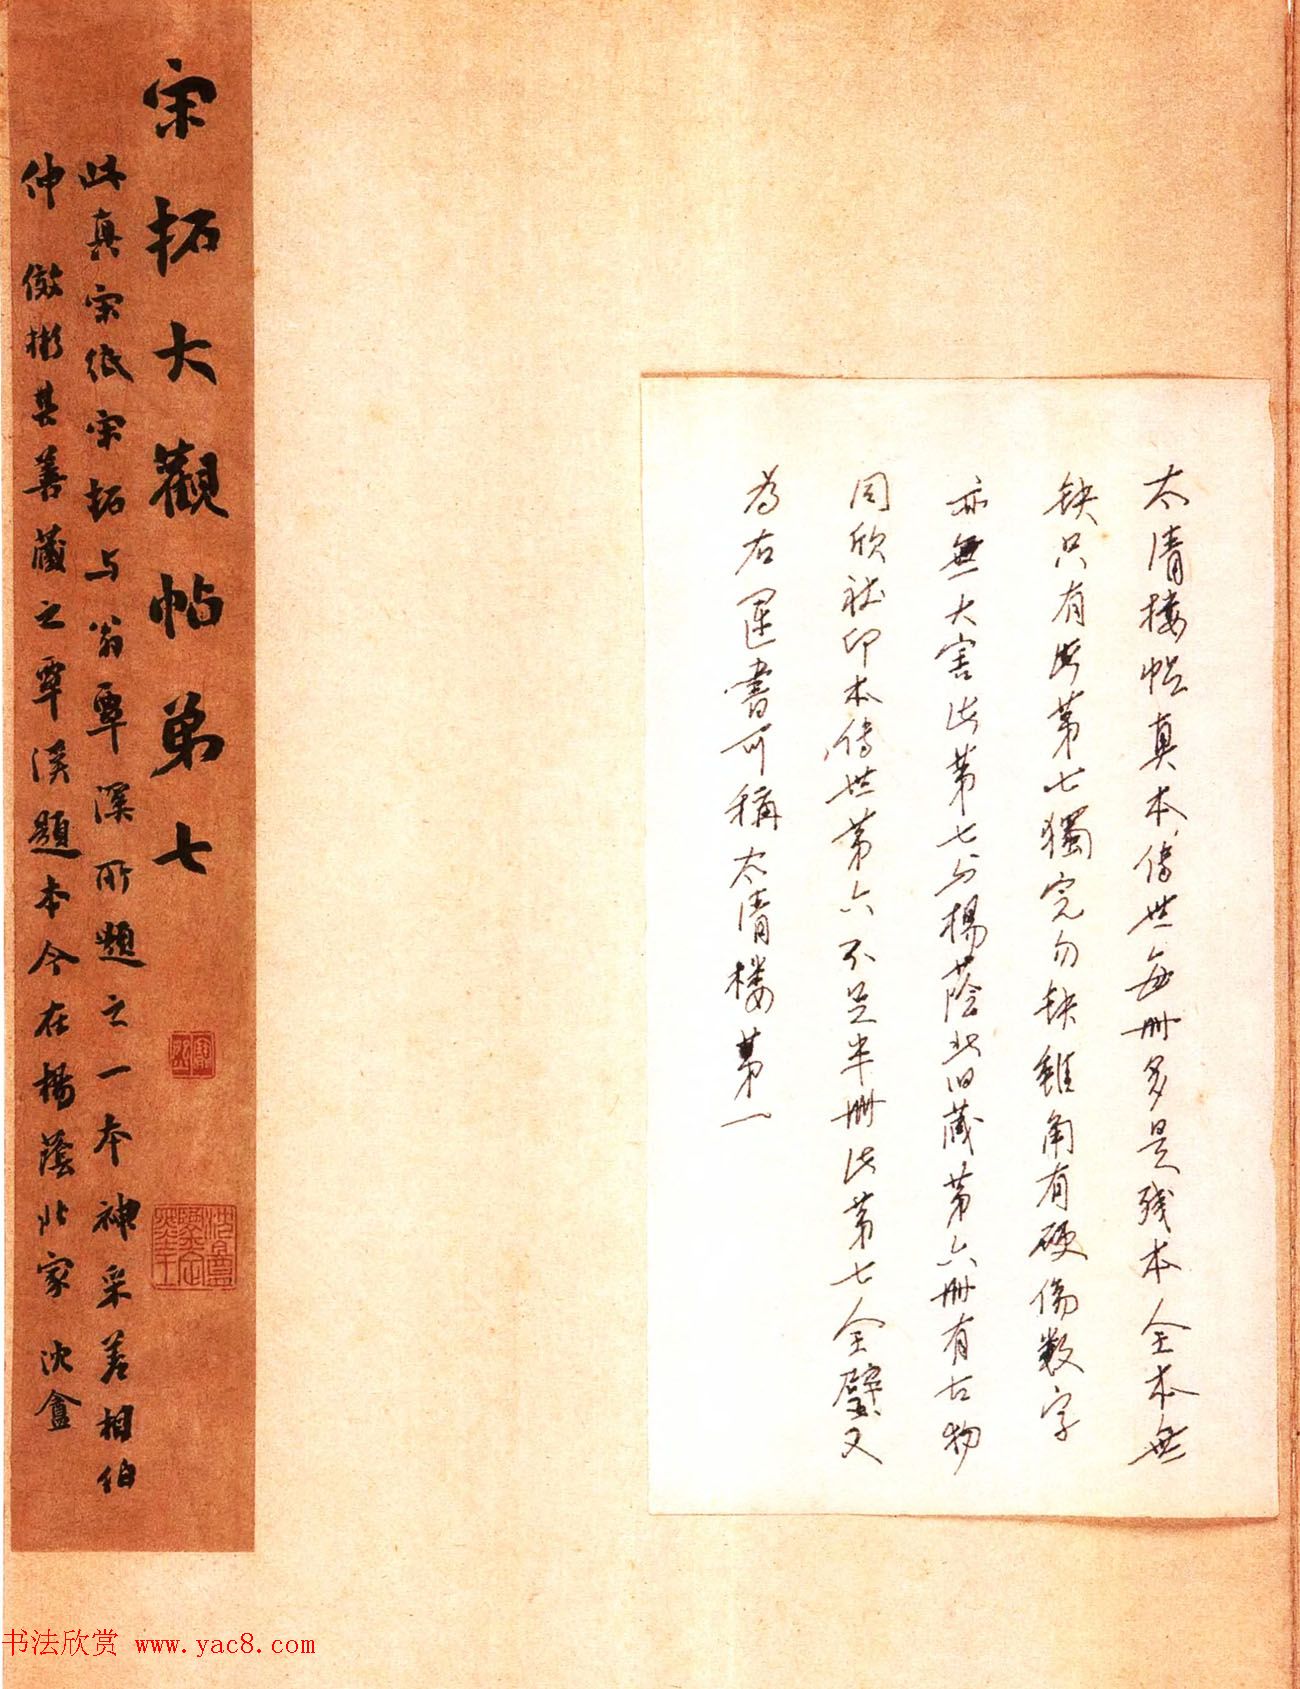 太清楼帖真本传世每册多是残本全本無
缺只有此第七獨完勿缺雖角有硬傷数字
亦無大害此第七与楊蔭北旧藏第六册有古物
同欣社印本傳世第六不足半册此第七全璧又
為右軍書可稱太清楼第一
宋拓大觀帖弟七
此真宋紙宋拓与翁覃溪所題之一本神采若相伯
仲 其善藏之覃溪題本今在楊蔭北家 沈盦
书法欣赏 www.yac8.com